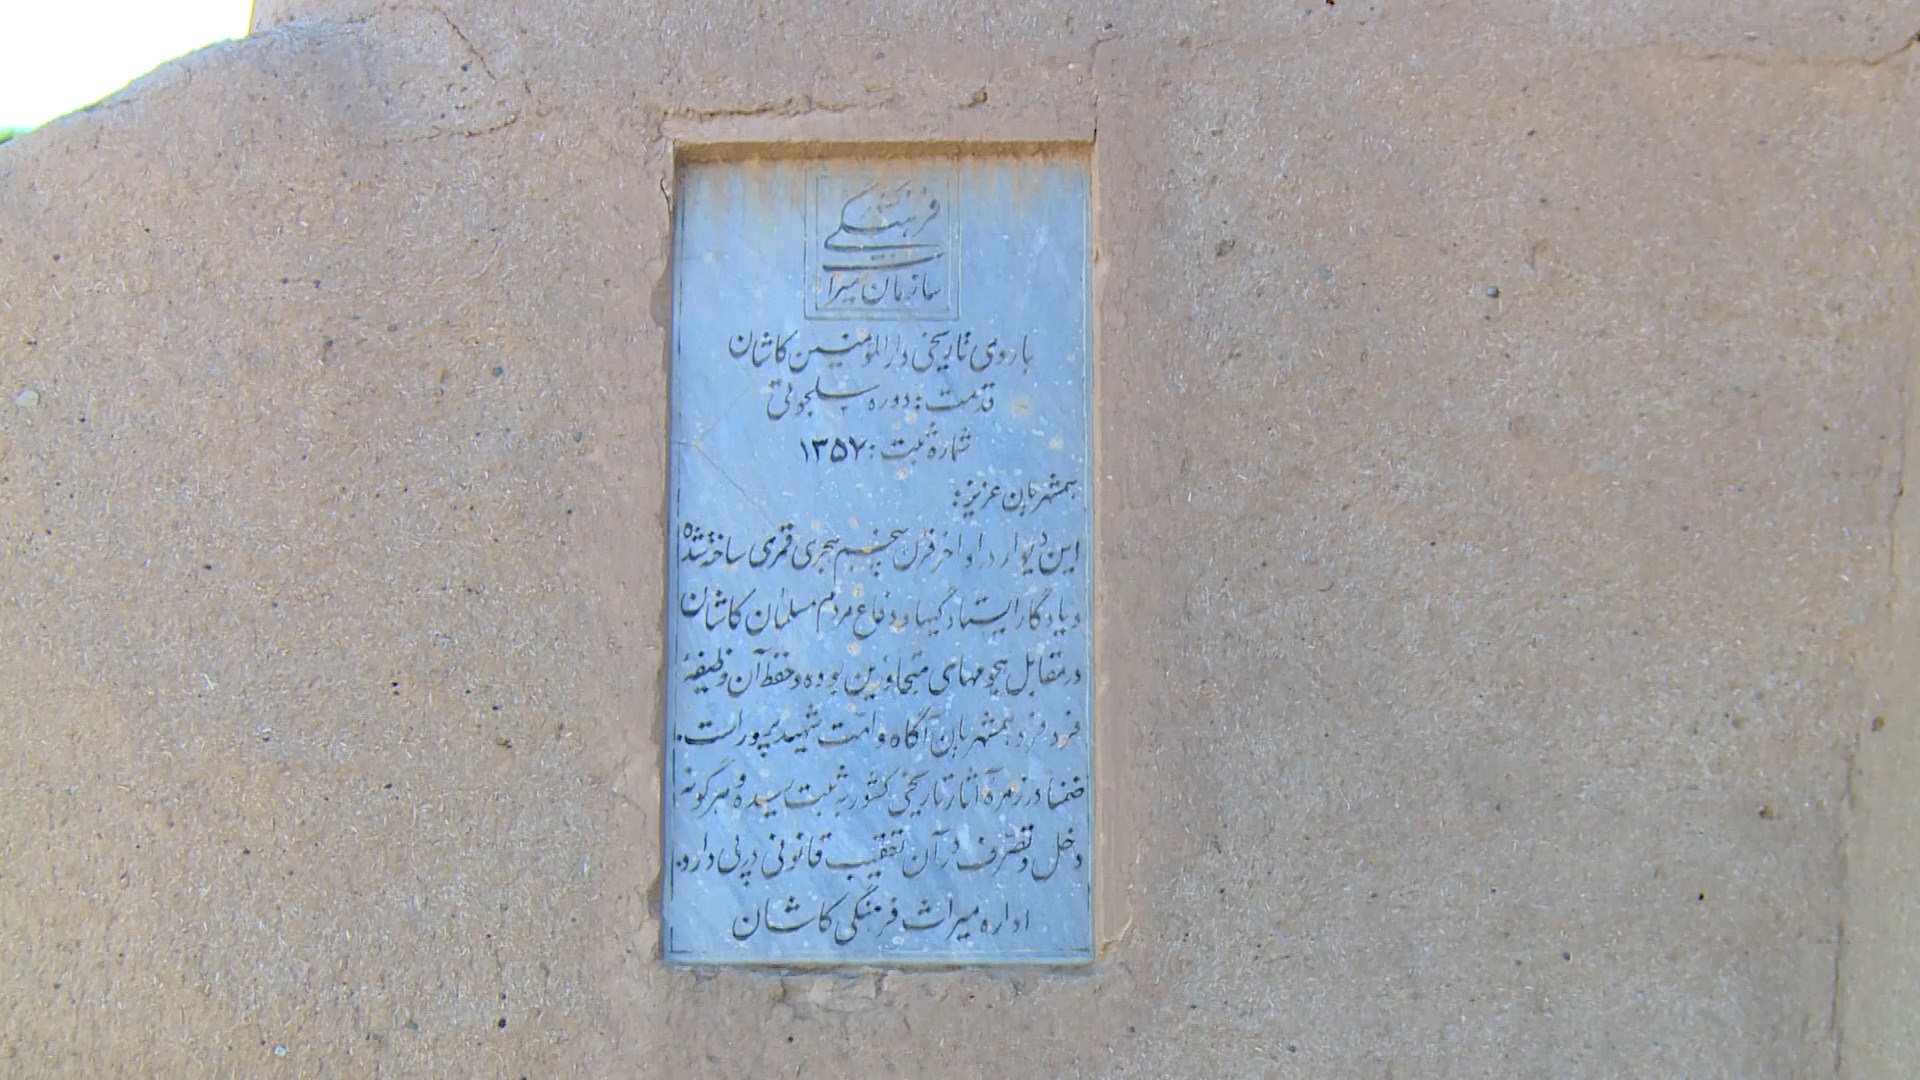 سازمان میراث
فرهنگی کشور
باروی تاریخی دارالمؤمنین کاشان
قدمت: دوره سلجوقی
شماره ثبت: ۱۳۵۷
همشهریان عزیز:
این دیوار در اواخر قرن پنجم هجری قمری ساخته شده
و یادگار ایستادگیها و دفاع مردم مسلمان کاشان
در مقابل هجومهای متجاوزین بوده و حفظ آن وظیفهٔ
فرد فرد همشهریان آگاه و امّت شهید پرور است.
ضمنا در زمره آثار تاریخی کشور به ثبت رسیده و هرگونه
دخل و تصرّف در آن تعقیب قانونی در پی دارد.
اداره میراث فرهنگی کاشان